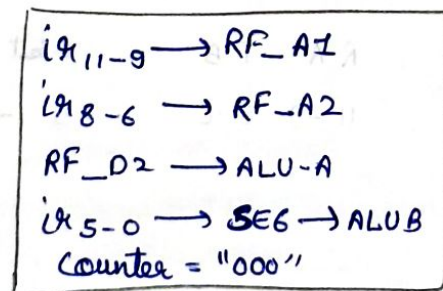 ir 11-9 → RF_A1
ir 8-6 → RF_A2
RF_D2 → ALU-A
ir 5-0 → SE6 → ALUB
Counter = "000"